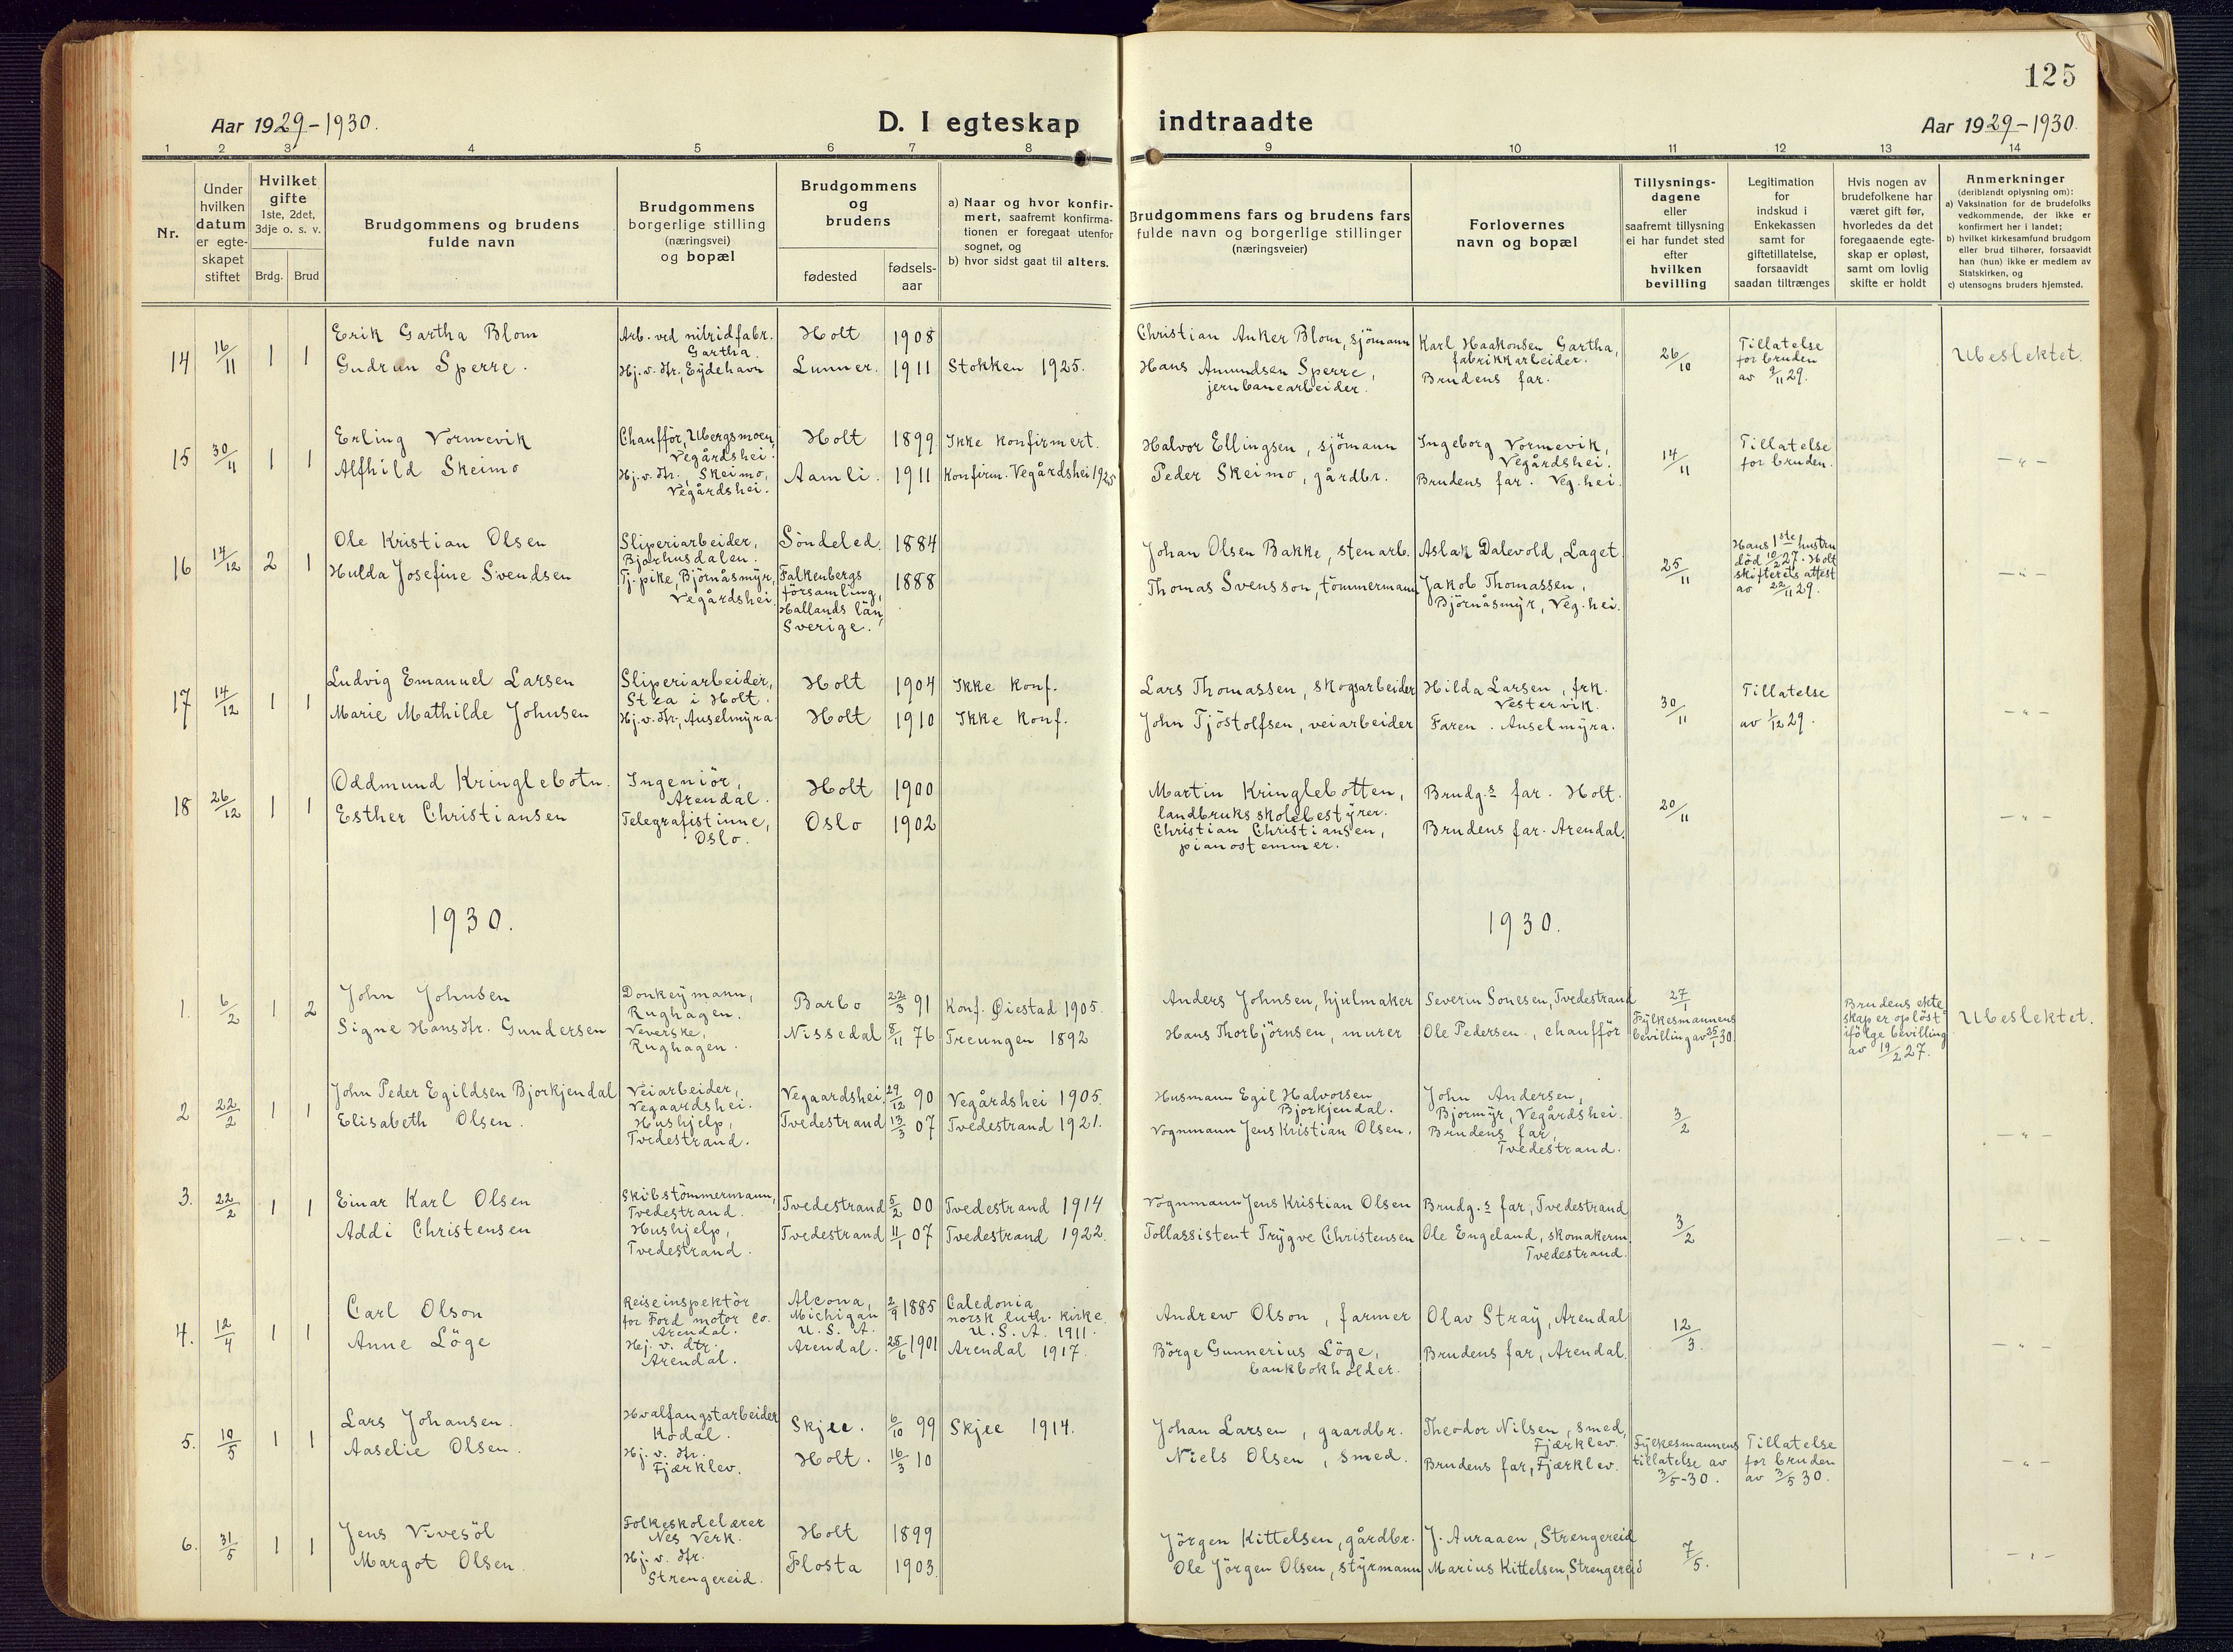 125
Aar 1929-1930.
D. I egteskap indtraadte
Aar 1929-1930.
1 2 3 4 5 6 7 8 9 10 11 12 13 14
Nr.
Under
hvilken
datum
er egte-
skapet
stiftet
Hvilket
gifte
1ste, 2det,
3dje o. s. v.
Brdg. Brud
Brudgommens og brudens
fulde navn
Brudgommens
borgerlige stilling
(næringsvei)
og bopæl
Brudgommens
og
brudens
fødested
fødsels-
aar
a) Naar og hvor konfir-
mert, saafremt konfirma-
tionen er foregaat utenfor
sognet, og
b) hvor sidst gaat til alters.
Brudgommens fars og brudens fars
fulde navn og borgerlige stillinger
(næringsveier)
Forlovernes
navn og bopæl
Tillysnings-
dagene
eller
saafremt tillysning
ei har fundet sted
efter
hvilken
bevilling
Legitimation
for
indskud i
Enkekassen
samt for
giftetillatelse,
forsaavidt
saadan tiltrænges
Hvis nogen av
brudefolkene har
været gift før,
hvorledes da det
foregaaende egte-
skap er opløst,
samt om lovlig
skifte er holdt
Anmerkninger
(deriblandt oplysning om):
a) Vaksination for de brudefolks
vedkommende, der ikke er
konfirmert her i landet;
b) hvilket kirkesamfund brudgom
eller brud tilhører, forsaavidt
han (hun) ikke er medlem av
Statskirken, og
c) utensogns bruders hjemsted.
14 16/11 1 1
Erik Gartha Blom
Gudrun Sperre.
Arb. ved nitridfabr.
Gartha.
Hj. v. dtr., Eydehavn
Holt 1908
Lunner. 1911 Stokken 1925.
Christian Anker Blom, sjömann
Hans Amundsen Sperre,
jernbanearbeider.
Karl Haakonsen Gartha,
fabrikkarbeider.
Brudens far.
26/10
Tillatelse
for bruden
av 9/11 29.
Ubeslektet.
15 30/11 1 1
Erling Vormevik
Alfhild Skeimo
Chaufför, Ubergsmoen,
Vegårdshei.
Hj. v. dtr., Skeimo,
Vegårdshei.
Holt 1899 Ikke konfirmert.
Aamli. 1911 Konfirm. Vegårdshei 1925
Halvor Ellingsen, sjömann
Peder Skeimo, gårdbr.
Ingeborg Vormevik,
Vegårdshei.
Brudens far. Veg.hei.
14/11
Tillatelse
for bruden.
— " —
16 14/12 2 1
Ole Kristian Olsen
Hulda Josefine Svendsen
Sliperiarbeider,
Bjorhusdalen.
Tj. pike, Björnåsmyr,
Vegårdshei.
Söndeled. 1884
Falkenbergs
församling,
Hallands län,
Sverige.
1888
Johan Olsen Bakke, stenarb.
Thomas Svensson, tömmermann
Aslak Dalevold, Laget
Jakob Thomassen,
Björnåsmyr, Veg.hei.
25/11
Hans 1ste hustru
död 10/2 27. Holt
skifterets attest
av 22/11 29.
— " —
17 14/12 1 1
Ludvig Emanuel Larsen
Marie Mathilde Johnsen
Sliperiarbeider,
Stea i Holt.
Hj. v. dtr., Anselmyra
Holt 1904 Ikke konf.
Holt 1910 Ikke konf.
Lars Thomassen, skogsarbeider
John Tjöstolfsen, veiarbeider
Hilda Larsen, frk.
Vestervik.
Faren. Anselmyra.
30/11
Tillatelse
av 1/12 29.
— " —
18 26/12 1 1
Oddmund Kringlebotn.
Esther Christiansen
Ingeniör,
Arendal.
Telegrafistinne,
Oslo.
Holt 1900
Oslo 1902
Martin Kringlebotten,
landbruksskolebestyrer.
Christian Christiansen,
pianostemmer.
Brudg.s far. Holt.
Brudens far. Arendal.
20/11
— " —
1930. 1930.
1. 6/2 1 2
John Johnsen
Signe Hansdtr. Gundersen
Donkeymann,
Rughagen.
Veverske,
Rughagen.
Barbo 22/3 91 Konf. Øiestad 1905.
Nissedal 8/11 76 Treungen 1892
Anders Johnsen, hjulmaker
Hans Thorbjörnsen, murer
Severin Sonesen, Tvedestrand
Ole Pedersen, chaufför
27/1
Fylkesmannens
bevilling av 25/1 30.
Brudens ekte
skap er oplöst
ifölge bevilling
av 19/2 27.
Ubeslektet.
2 22/2 1 1
John Peder Egildsen Bjorkjendal
Elisabeth Olsen.
Veiarbeider,
Vegaardshei.
Hushjelp,
Tvedestrand.
Vegaardshei 29/12 90 Vegårdshei 1905.
Tvedestrand 13/3 07 Tvedestrand 1921.
Husmann Egil Halvorsen
Bjorkjendal.
Vognmann Jens Kristian Olsen.
John Andersen,
Bjormyr, Vegårdshei.
Brudens far,
Tvedestrand.
3/2
— " —
3. 22/2 1 1
Einar Karl Olsen
Addi Christensen
Skibstömmermann,
Tvedestrand.
Hushjelp,
Tvedestrand.
Tvedestrand 5/2 00 Tvedestrand 1914
Tvedestrand 11/1 07 Tvedestrand 1922.
Vognmann Jens Kristian Olsen
Tollassistent Trygve Christensen
Brudg.s far, Tvedestrand
Ole Engeland, skomakerm.
Tvedestrand.
3/2
— " —
4. 12/4 1 1
Carl Olson
Anne Löge
Reiseinspektör
for Ford motor Co.
Arendal.
Hj. v. dtr.
Arendal.
Alcona,
Michigan
U. S. A.
2/9 1885
Caledonia
norsk luth. kirke.
U. S. A. 1911.
Arendal. 25/6 1901 Arendal 1917.
Andrew Olson, farmer
Börge Gunnerius Löge,
bankbokholder.
Olav Stray, Arendal
Brudens far, Arendal.
12/3.
— " —
5. 10/5 1 1
Lars Johansen.
Aaselie Olsen.
Hvalfangstarbeider
Kodal.
Hj. v. dtr.
Fjærklev.
Skjee. 6/10 99 Skjee 1914.
Holt. 16/3 10
Johan Larsen, gaardbr.
Niels Olsen, smed.
Theodor Nilsen, smed,
Fjærklev.
Brudens far, Fjærklev.
Fylkesmannens
tillatelse av
3/5-30.
Tillatelse
for bruden
av 3/5 30.
— " —
6. 31/5 1 1
Jens Vivesöl
Margot Olsen.
Folkeskolelærer
Nes Verk.
Hj. v. dtr.
Strengereid.
Holt 1899
Flosta 1903.
Jörgen Kittelsen, gårdbr.
Ole Jörgen Olsen, styrmann
J. Auraaen, Strengereid
Marius Kittelsen, Strengereid
7/5.
— " —